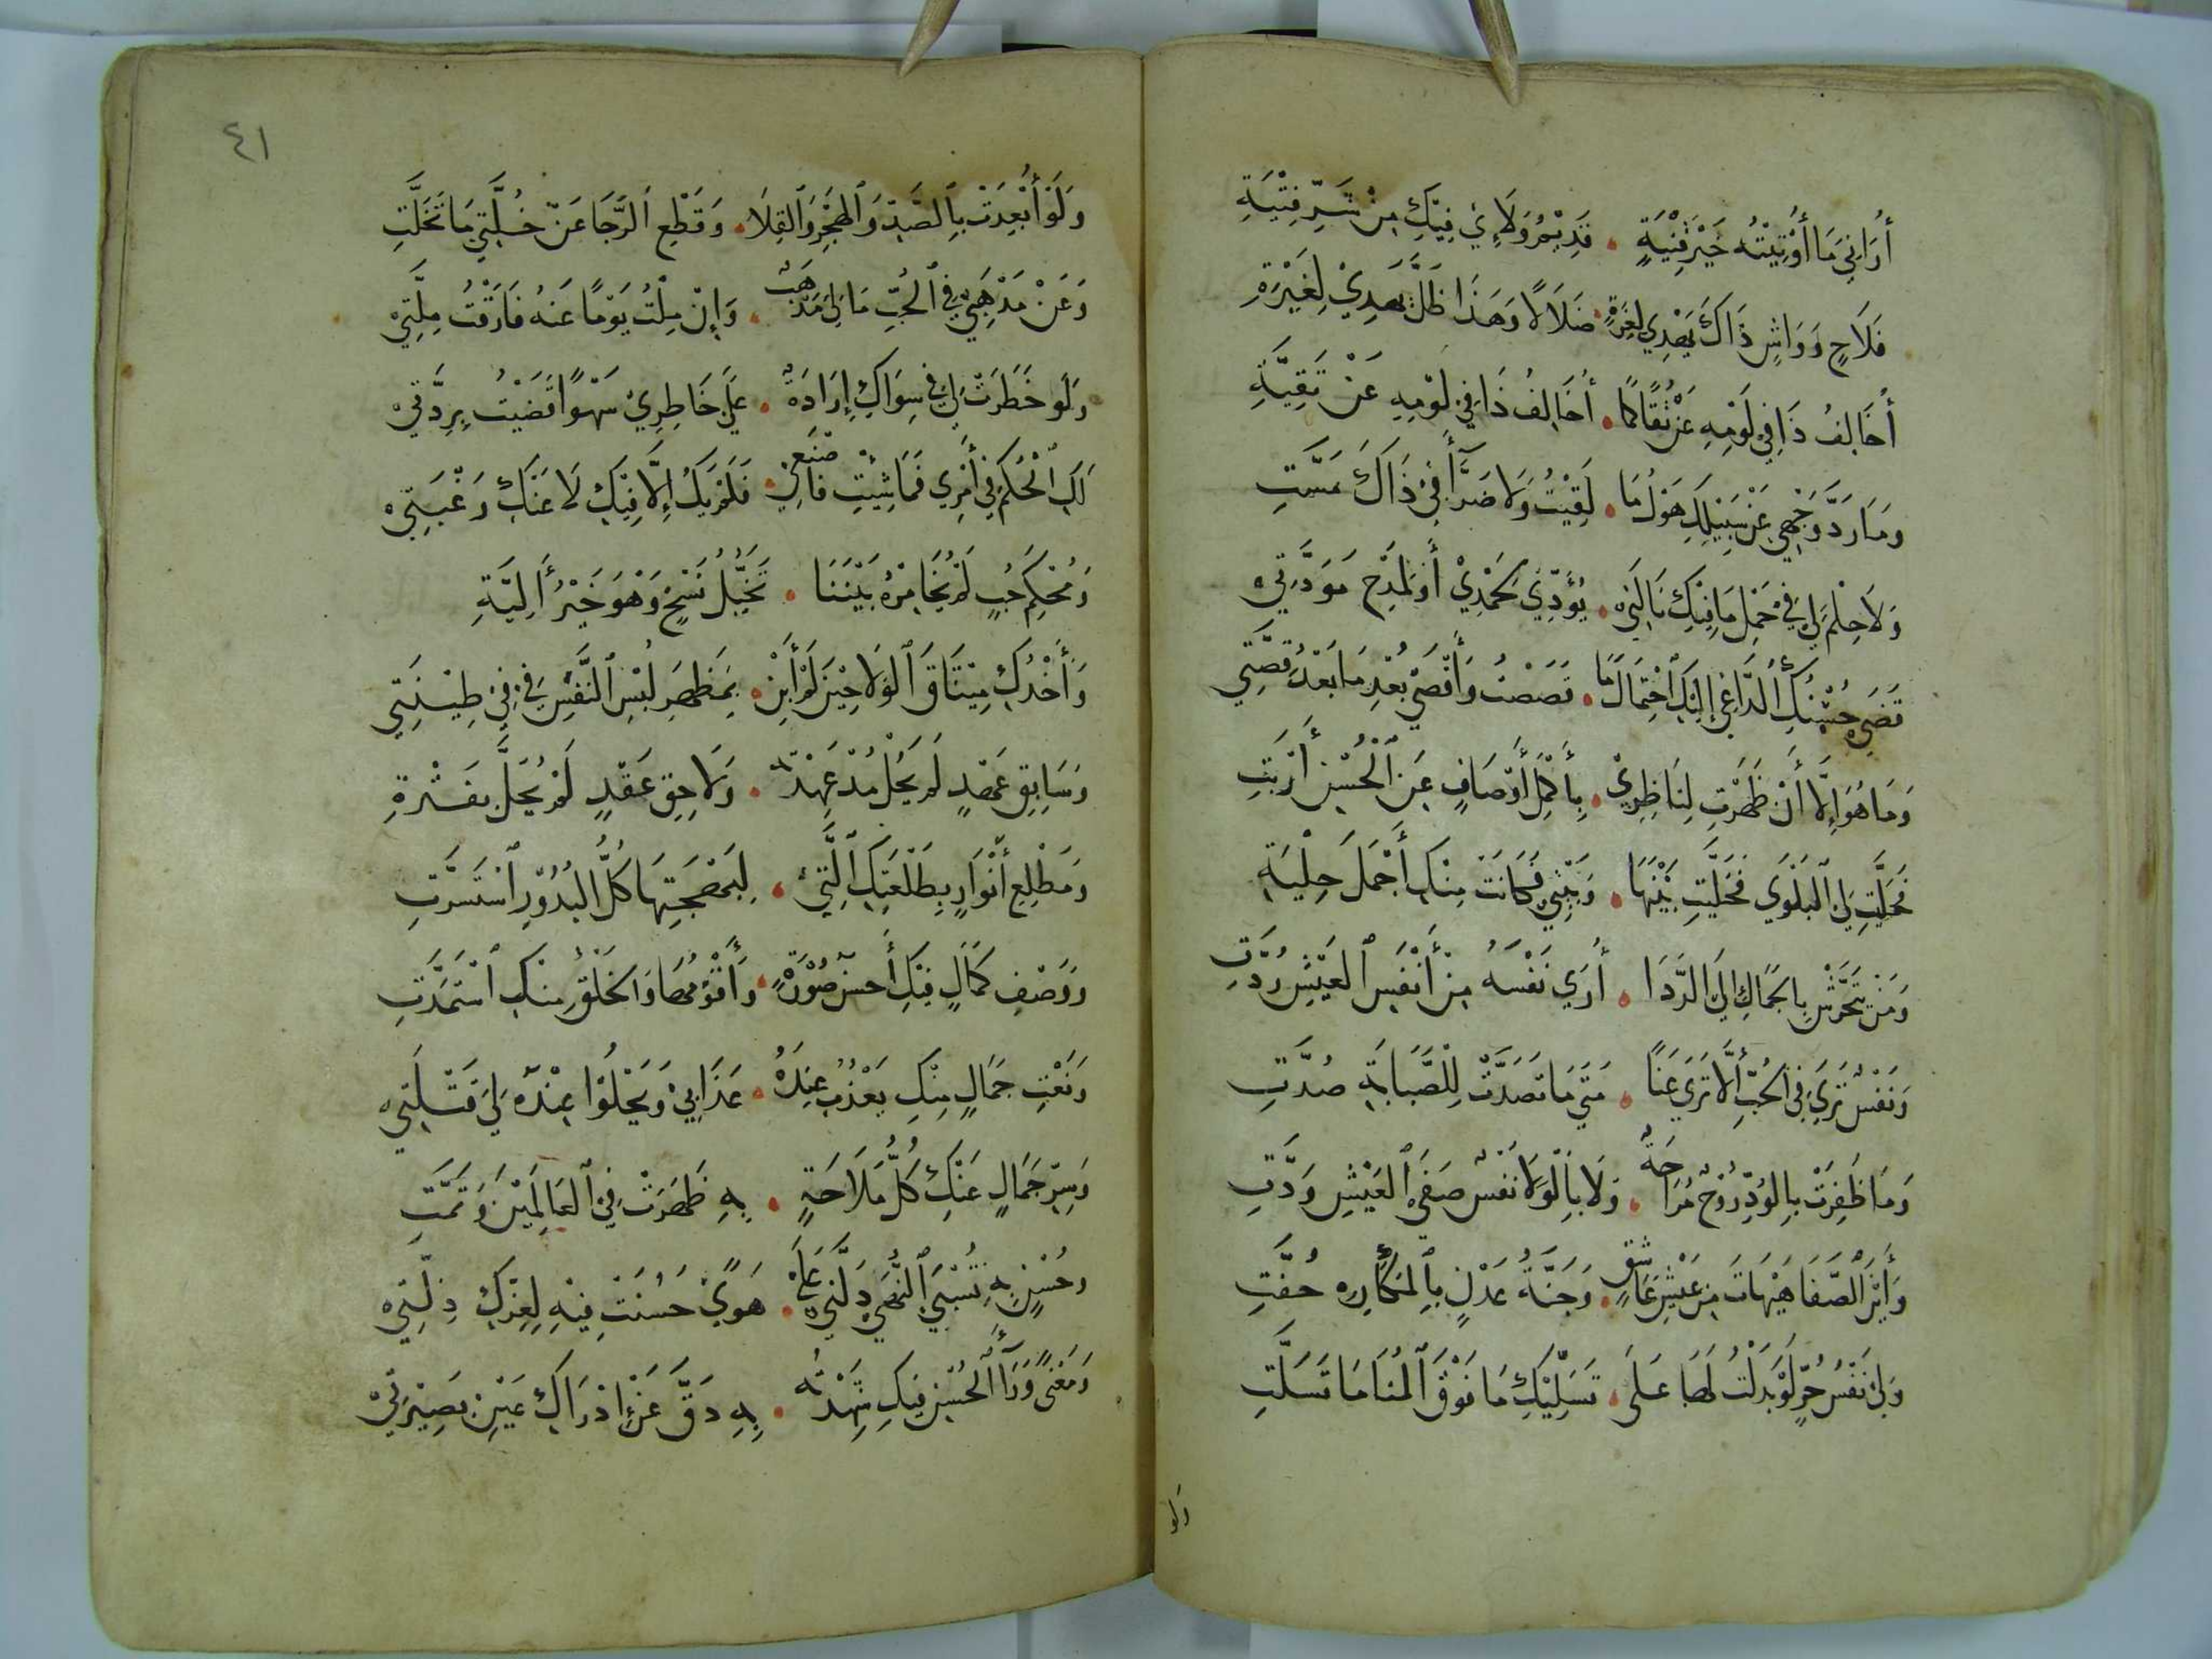 أُرَانِيَ مَا أُوْتِيْتُهُ خَيْرَ قُنْيَةٍ • قَدِيْمُ وَلَائِي فِيْكِ مِنْ شَرِّ فِتْيَةِ
فَلَاحٍ وَوَاشٍ ذَاكَ يَهْدِي لِغِرَّةٍ • ضَلَالًا وَهَذَا ظَلَّ يَهذِيْ لِغَيْرَةِ
أُخَالِفُ ذَا فِيْ لَوْمِهِ عَنْ تُقًا كَمَا • أُخَالِفُ ذَا فِيْ لَوْمِهِ عَنْ تَقِيَّةِ
وَمَا رَدَّ وَجْهِي عَنْ سَبِيْلِكِ هَوْلُ مَا • لَقِيْتُ وَلَا ضَرَّآءُ فِيْ ذَاكَ مَسَّتِ
وَلَا حِلْمَ لِيْ فِيْ حَمْلِ مَا فِيْكِ نَالَنِيْ • يُؤَدِّيْ لِحَمْدِيْ أَوْ لِمَدْحِ مَوَدَّتِيْ
قَضَى حُسْنُكِ الدَّاعِي إِلَيْكِ احْتِمَالَ مَا • قَصَصْتُ وَأَقْصَى بُعْدِ مَا بَعْدَ قِصَّتِي
وَمَا هُوَ إِلَّا أَنْ ظَهَرْتِ لِنَاظِرِيْ • بِأَكْمَلِ أَوْصَافٍ عَنِ الْحُسْنِ أَرْبَتِ
فَحَلَّيْتِ لِيَ الْبَلْوَى فَخَلَّيْتِ بَيْنَهَا • وَبَيْنِيْ فَكَانَتْ مِنْكِ أَجْمَلَ حِلْيَةِ
وَمَنْ يَتَحَرَّشْ بِالجَمَالِ إِلَى الرَّدَا • أُرَى نَفْسَهُ مِنْ أَنْفَسِ العَيْشِ رُدَّتِ
وَنَفْسٌ تَرَى فِي الحُبِّ أَلَّا تَرَى عَنًا • مَتَى مَا تَصَدَّتْ لِلْصَّبَابَةِ صُدَّتِ
وَمَا ظَفِرَتْ بِالوُدِّ رُوْحٌ مُرَاحَةٌ • وَلَا بِالْوَلَا نَفْسٌ صَفَى الْعَيْشِ وَدَّتِ
وَأَيْنَ الْصَّفَا هَيْهَاتَ مِنْ عَيْشِ عَاشِقٍ • وَجَنَّةُ عَدْنٍ بِالْمَكَارِهِ حُفَّتِ
وَلِيْ نَفْسُ حُرٍّ لَوْ بَذَلْتُ لَهَا عَلَى • تَسَلِّيْكِ مَا فَوْقَ الْمُنَا مَا تَسَلَّتِ
ولو
٤١
وَلَوْ أُبْعِدَتْ بِالصَّدِّ وَالهَجْرِ وَالقِلَا • وَقَطْعِ الرَّجَا عَنْ خُلَّتِي مَا تَخَلَّتِ
وَعَنْ مَذْهَبِيْ فِي الْحُبِّ مَا لِيَ مَذْهَبٌ • وَإِنْ مِلْتُ يَوْمًا عَنْهُ فَارَقْتُ مِلَّتِيْ
وَلَو خَطَرَتْ لِيْ فِي سِوَاكِ إِرَادَةٌ • عَلَى خَاطِرِيْ سَهْوًا قَضَيْتُ بِرِدَّتِيْ
لَكِ الْحُكْمُ فِيْ أَمْرِي فَمَا شِئْتِ فَاصْنَعِي • فَلَمْ يَكُ إِلَّا فِيْكِ لَا عَنْكِ رَغْبَتِيْ
وَمُحْكَمِ حُبٍ لَمْ يُخَامِرْهُ بَيْنَنَا • تَخَيُّلُ نَسْخٍ وَهْوَ خَيْرُ أَلِيَّةِ
وَأَخْذِكِ مِيْثَاقَ الْوَلَا حِيْنَ لَمْ أَبِنْ • بِمَظْهَرِ لُبْسِ النَّفْسِ فِيْ فِيْ طِيْنَتِي
وَسَابِقِ عَهْدٍ لَمْ يَحُلْ مُذْ عَهِدْتُهُ • وَلَاحِقِ عَقْدٍ لَمْ يُحَلَّ بِفَتْرَةِ
وَمَطْلِعِ أَنْوَارٍ بِطَلْعَتِكِ الَّتِيْ • لِبَهْجَتِهَا كُلُّ الْبُدُوْرِ اسْتَسَرَّتِ
وَوَصْفِ كَمَالٍ فِيْكِ أَحْسَنُ صُوْرَةٍ • وَأَقْوَمُهَا وَالخَلْقُ مِنْكِ اسْتَمَدَّتِ
وَنَعْتِ جَمَالٍ مِنْكِ يَعْذُبُ عِنْدَهُ • عَذَابِيْ وَيَحْلُوْا عِنْدَهُ لِيَ قَتْلَتِيْ
وَسِرِّ جَمَالٍ عَنْكِ كُلُّ مَلَاحَةٍ • بِهِ ظَهَرَتْ فِيْ الْعَالَمِيْنَ وَتَمَّتِ
وَحُسْنٍ بِهِ تُسْبَى النُّهَى دَلَّنِيْ عَلَى • هَوًى حَسُنَتْ فِيْهِ لِعِزِّكِ ذِلَّتِيْ
وَمَعْنًى وَرَآءَ الْحُسْنِ فِيْكِ شَهِدْتُهُ • بِهِ دَقَّ عَنْ إِدْرَاكِ عَيْنِ بَصِيْرَتِيْ